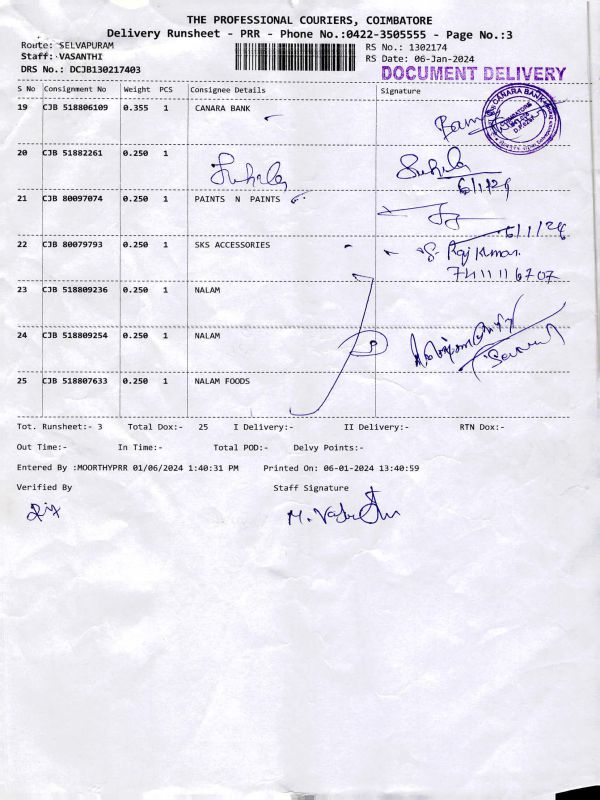 THE PROFESSIONAL COURIERS, COIMBATORE
Delivery Runsheet - PRR - Phone No.:0422-3505555 - Page No.:3
Route: SELVAPURAM
RS No.: 1302174
Staff: VASANTHI
RS Date: 06-Jan-2024
DRS No.: DCJB130217403
DOCUMENT DELIVERY
S No Consignment No Weight PCS Consignee Details Signature
19 CJB 518806109 0.355 1 CANARA BANK
CANARA BANK
20 CJB 51882261 0.250 1
6/1/24
21 CJB 80097074 0.250 1 PAINTS N PAINTS
6/1/24
22 CJB 80079793 0.250 1 SKS ACCESSORIES
S. Raj kumar
23 CJB 518809236 0.250 1 NALAM
24 CJB 518809254 0.250 1 NALAM
25 CJB 518807633 0.250 1 NALAM FOODS
Tot. Runsheet:- 3 Total Dox:- 25 I Delivery:- II Delivery:- RTN Dox:-
Out Time:- In Time:- Total POD:- Delvy Points:-
Entered By :MOORTHYPRR 01/06/2024 1:40:31 PM Printed On: 06-01-2024 13:40:59
Verified By Staff Signature